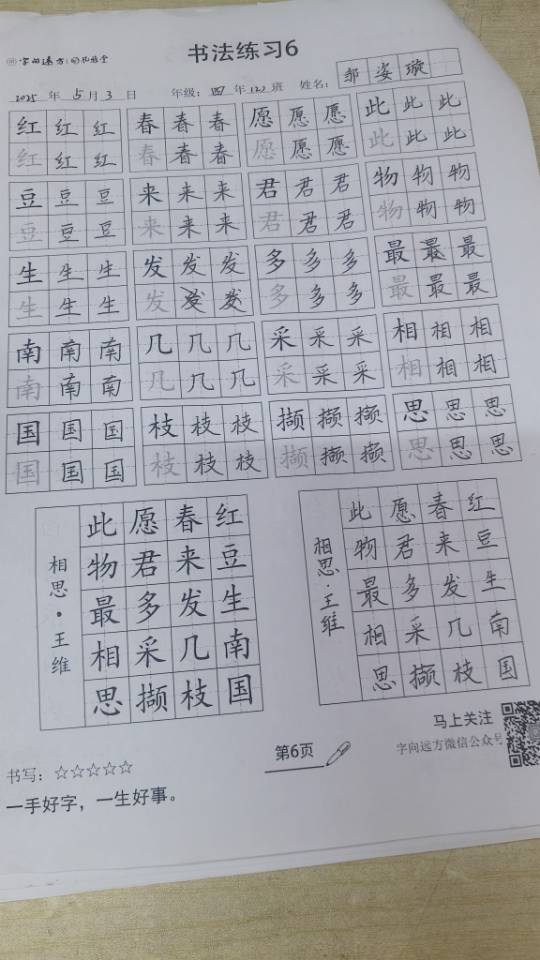 字向远方
书法练习6
2025 年 5 月 3 日 年级：四 年 122 班 姓名：邹姿璇
红 红 红 春 春 春 愿 愿 愿 此 此 此
红 红 红 春 春 春 愿 愿 愿 此 此 此
豆 豆 豆 来 来 来 君 君 君 物 物 物
豆 豆 豆 来 来 来 君 君 君 物 物 物
生 生 生 发 发 发 多 多 多 最 最 最
生 生 生 发 发 发 多 多 多 最 最 最
南 南 南 几 几 几 采 采 采 相 相 相
南 南 南 几 几 几 采 采 采 相 相 相
国 国 国 枝 枝 枝 撷 撷 撷 思 思 思
国 国 国 枝 枝 枝 撷 撷 撷 思 思 思
红豆生南国
春来发几枝
愿君多采撷
此物最相思
相思·王维
红豆生南国
春来发几枝
愿君多采撷
此物最相思
相思·王维
书写：☆☆☆☆☆
一手好字，一生好事。
第6页
马上关注
字向远方微信公众号